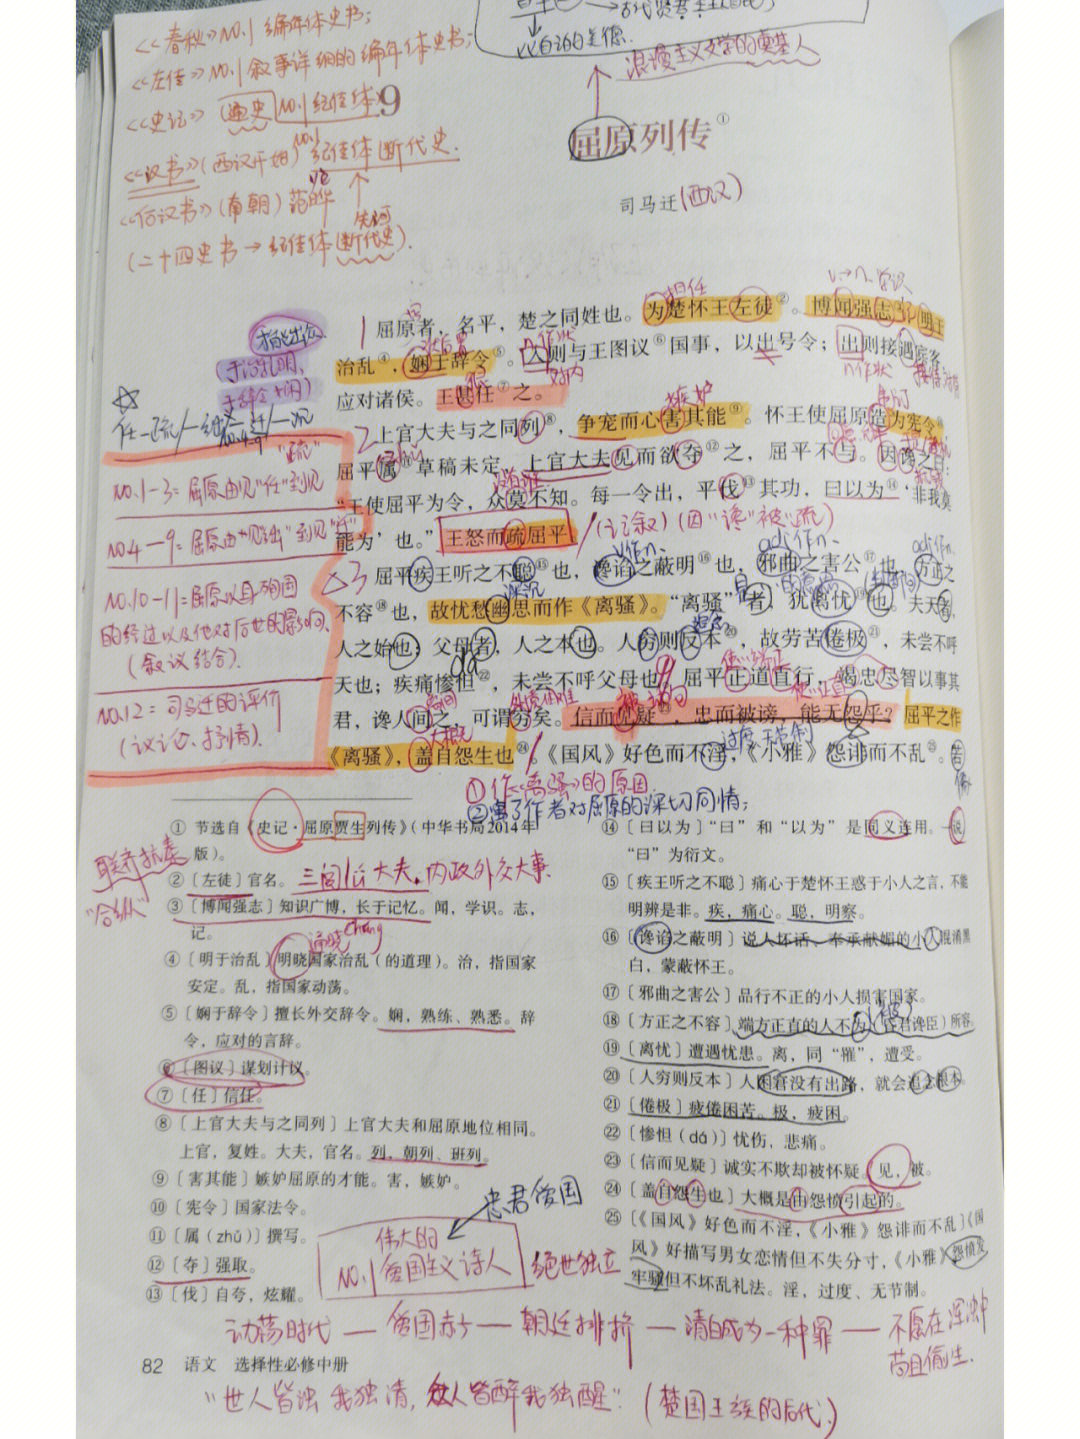 《春秋》NO.1 编年体史书；
《左传》NO.1 叙事详细的编年体史书；
《史记》 通史 NO.1 纪传体
《汉书》(西汉开始) NO.1 纪传体断代史.
(南朝) 范晔
(二十四史书→纪传体断代史).
古代贤君
浪漫主义文学的奠基人
9
屈原列传①
司马迁(西汉)
担任
1 屈原者，名平，楚之同姓也。为楚怀王左徒②。博闻强志③，明于
治乱④，娴于辞令⑤。入则与王图议⑥国事，以出号令；出则接遇宾客，
n作状
对内
n作状
应对诸侯。王甚任⑦之。
任—疏—绌—迁—沉
嫉妒
2 上官大夫与之同列⑧，争宠而心害其能⑨。怀王使屈原造为宪令⑩，
屈平属⑪草稿未定，上官大夫见而欲夺⑫之，屈平不与。因谗之曰：
“王使屈平为令，众莫不知。每一令出，平伐⑬其功，曰以为⑭‘非我莫
能为’也。”王怒而疏屈平。
(记叙)(因“谗”被“疏”)
NO.1-3：屈原由见“任”到见“疏”
NO.4—9：屈原由“见绌”到见“迁”
NO.10-11：屈原以身殉国
的经过以及他对后世的影响.
(叙议结合).
NO.12：司马迁的评价
(议论、抒情).
v作n.
adj作n.
adj作n.
3 屈平疾王听之不聪⑮也，谗谄之蔽明⑯也，邪曲之害公⑰也，方正之
不容⑱也，故忧愁幽思而作《离骚》。“离骚”者，犹离忧⑲也。夫天者，
人之始也；父母者，人之本也。人穷则反本⑳，故劳苦倦极㉑，未尝不呼
天也；疾痛惨怛㉒，未尝不呼父母也。屈平正道直行，竭忠尽智以事其
君，谗人间之，可谓穷矣。信而见疑㉓，忠而被谤，能无怨乎？屈平之作
《离骚》，盖自怨生也㉔。《国风》好色而不淫，《小雅》怨诽而不乱㉕。若
大概
过度 无节制
①作《离骚》的原因
②写了作者对屈原的深切同情；
① 节选自《史记·屈原贾生列传》（中华书局2014年
版）。
联齐抗秦
“合纵”
② 〔左徒〕官名。三闾大夫. 内政外交大事.
③ 〔博闻强志〕知识广博，长于记忆。闻，学识。志，
记。
通晓
④ 〔明于治乱〕明晓国家治乱（的道理）。治，指国家
安定。乱，指国家动荡。
⑤ 〔娴于辞令〕擅长外交辞令。娴，熟练、熟悉。辞
令，应对的言辞。
⑥ 〔图议〕谋划计议。
⑦ 〔任〕信任。
⑧ 〔上官大夫与之同列〕上官大夫和屈原地位相同。
上官，复姓。大夫，官名。列，朝列、班列。
⑨ 〔害其能〕嫉妒屈原的才能。害，嫉妒。
⑩ 〔宪令〕国家法令。
⑪ 〔属（zhǔ）〕撰写。
⑫ 〔夺〕强取。
⑬ 〔伐〕自夸，炫耀。
⑭ 〔曰以为〕“曰”和“以为”是同义连用。一说
“曰”为衍文。
⑮ 〔疾王听之不聪〕痛心于楚怀王惑于小人之言，不能
明辨是非。疾，痛心。聪，明察。
⑯ 〔谗谄之蔽明〕说人坏话、奉承献媚的小人混淆黑
白，蒙蔽怀王。
⑰ 〔邪曲之害公〕品行不正的小人损害国家。
⑱ 〔方正之不容〕端方正直的人不为（昏君谗臣）所容。
⑲ 〔离忧〕遭遇忧患。离，同“罹”，遭受。
⑳ 〔人穷则反本〕人困窘没有出路，就会追念根本。
㉑ 〔倦极〕疲倦困苦。极，疲困。
㉒ 〔惨怛（dá）〕忧伤，悲痛。
㉓ 〔信而见疑〕诚实不欺却被怀疑。见，被。
㉔ 〔盖自怨生也〕大概是由怨愤引起的。
㉕ 〔《国风》好色而不淫，《小雅》怨诽而不乱〕《国
风》好描写男女恋情但不失分寸，《小雅》怨愤发
牢骚但不坏乱礼法。淫，过度、无节制。
忠君爱国
伟大的
NO.1 爱国主义诗人
绝世独立
动荡时代—爱国赤子—朝廷排挤—清白成为一种罪—不愿在浑浊中
苟且偷生.
82 语文 选择性必修中册
“世人皆浊我独清, 众人皆醉我独醒.” (楚国王族的后代.)